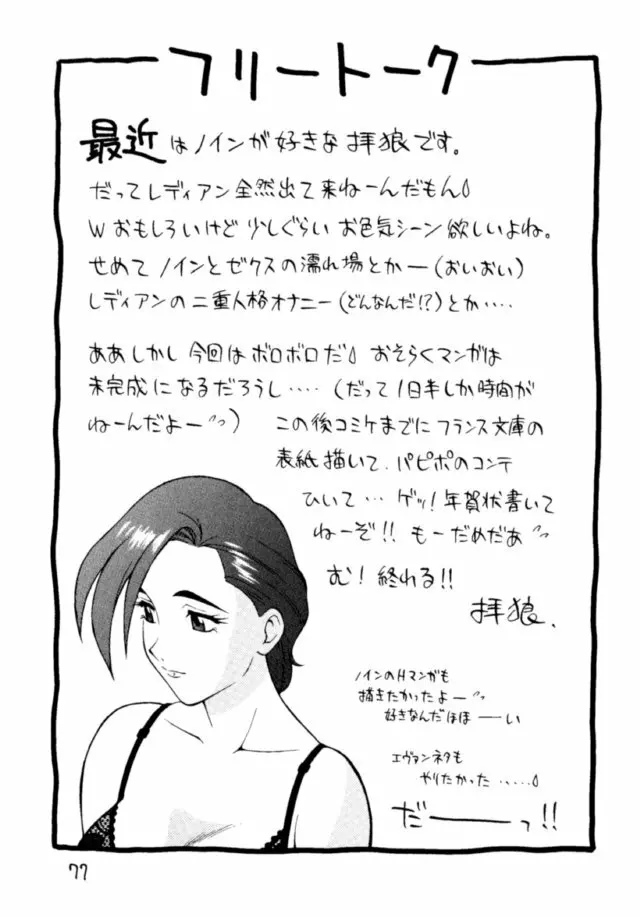 フリートーク
最近はノインが好きな拝狼です。
だってレディアン全然出て来ねーんだもん
Wおもしろいけど少しぐらいお色気シーン欲しいよね。
せめてノインとゼクスの濡れ場とかー(おいおい)
レディアンの二重人格オナニー(どんなんだ!?)とか‥‥
ああしかし今回はボロボロだ おそらくマンガは
未完成になるだろうし‥‥(だって1日半しか時間が
ねーんだよー)この後コミケまでにフランス文庫の
表紙描いて、パピポのコンテ
ひいて…ゲッ!年賀状書いて
ねーぞ!!もーだめだあ
む!終れる!!
拝狼、
ノインのHマンガも
描きたかったよー
好きなんだほほーい
エヴァンネタも
やりたかった‥‥‥
だーーっ!!
77